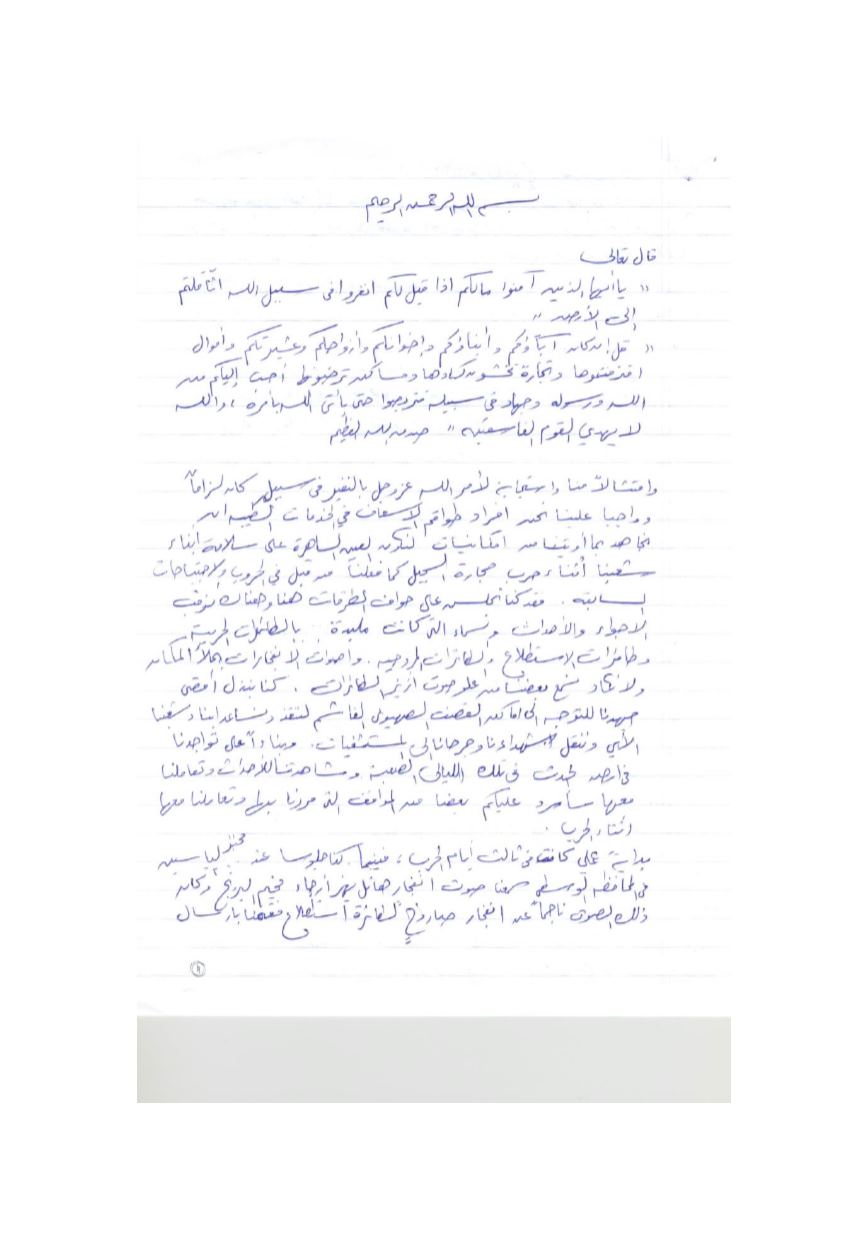 بسم الله الرحمن الرحيم
قال تعالى
" يا أيها الذين آمنوا مالكم اذا قيل لكم انفروا في سبيل الله اثّاقلتم
إلى الأرض "
" قل إن كان آباؤكم وأبناؤكم وإخوانكم وأزواجكم وعشيرتكم وأموال
اقترفتموها وتجارة تخشون كسادها ومساكن ترضونها أحب إليكم من
الله ورسوله وجهاد في سبيله فتربصوا حتى يأتي الله بأمره ، والله
لا يهدي القوم الفاسقين " صدق الله العظيم
وامتثالاً منا واستجابة لأمر الله عز وجل بالنفير في سبيل كان لزاماً
وواجبا علينا نحن افراد طواقم الإسعاف في الخدمات الطبية ان
نجاهد بما أوتينا من امكانيات لنكون العين الساهرة على سلامة ابناء
شعبنا أثناء حرب حجارة السجيل كما فعلنا من قبل في الحروب والاجتياحات
السابقة . فقد كنا نجلس على حواف الطرقات هنا وهناك نرقب
الاجواء والأحداث وسماء التي كانت ملبدة بالطائرات الحربية
وطائرات الاستطلاع والطائرات المروحية . واصوات الانفجارات تملأ المكان
ولا نكاد نسمع بعضنا من علو صوت أزيز الطائرات . كنا نبذل أقصى
جهدنا للتوجه إلى اماكن القصف الصهيوني الغاشم لننقذ ونساعد ابناء شعبنا
الأبي وننقل شهداءنا وجرحانا إلى المستشفيات . وبناءاً على تواجدنا
في ارض الحدث في تلك الليالي الصعبة ومشاهدتنا للأحداث وتعاملنا
معها سأسرد عليكم بعضا من المواقف التي مررنا بها وتعاملنا معها
اثناء الحرب .
بداية على كانت في ثالث أيام الحرب ، فبينما كنا جلوسا عند ياسين
في المحافظة الوسطى سمعنا صوت انفجار هائل يهز أرجاء مخيم البريج وكان
ذلك الصوت ناجماً عن انفجار صاروخ لطائرة استطلاع فقمنا بارسال
١